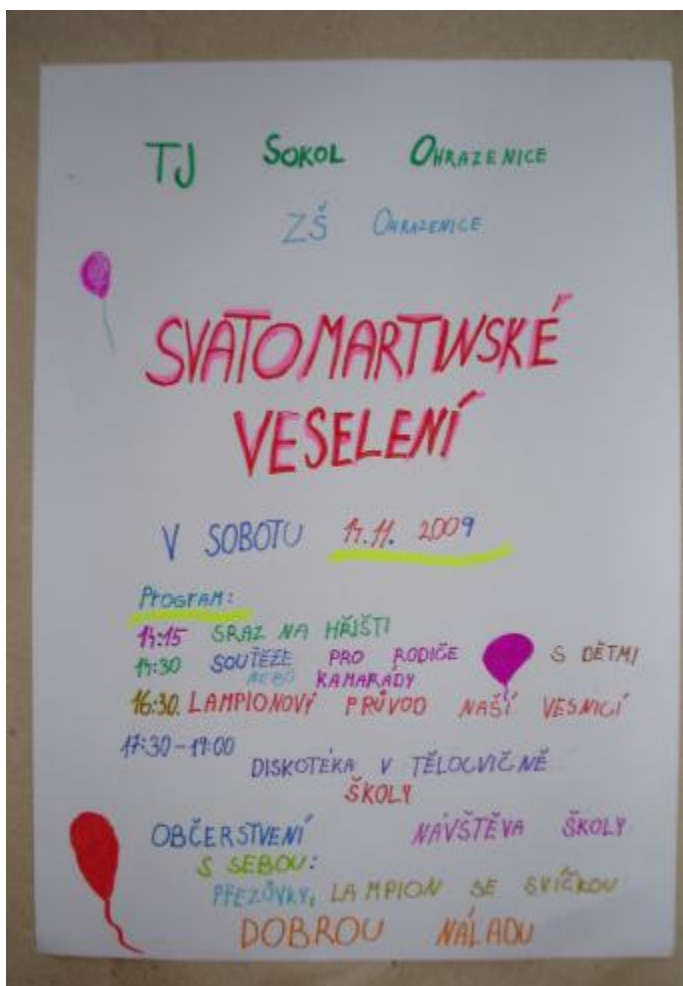 TJ SOKOL OHRAZENICE
ZŠ OHRAZENICE
SVATOMARTINSKÉ
VESELENÍ
V SOBOTU 14.11. 2009
PROGRAM:
14:15 SRAZ NA HŘIŠTI
14:30 SOUTĚŽE PRO RODIČE S DĚTMI
NEBO KAMARÁDY
16:30 LAMPIONOVÝ PRŮVOD NAŠÍ VESNICÍ
17:30-19:00
DISKOTÉKA V TĚLOCVIČNĚ
ŠKOLY
OBČERSTVENÍ NÁVŠTĚVA ŠKOLY
S SEBOU:
PŘEZŮVKY, LAMPION SE SVÍČKOU
DOBROU NÁLADU